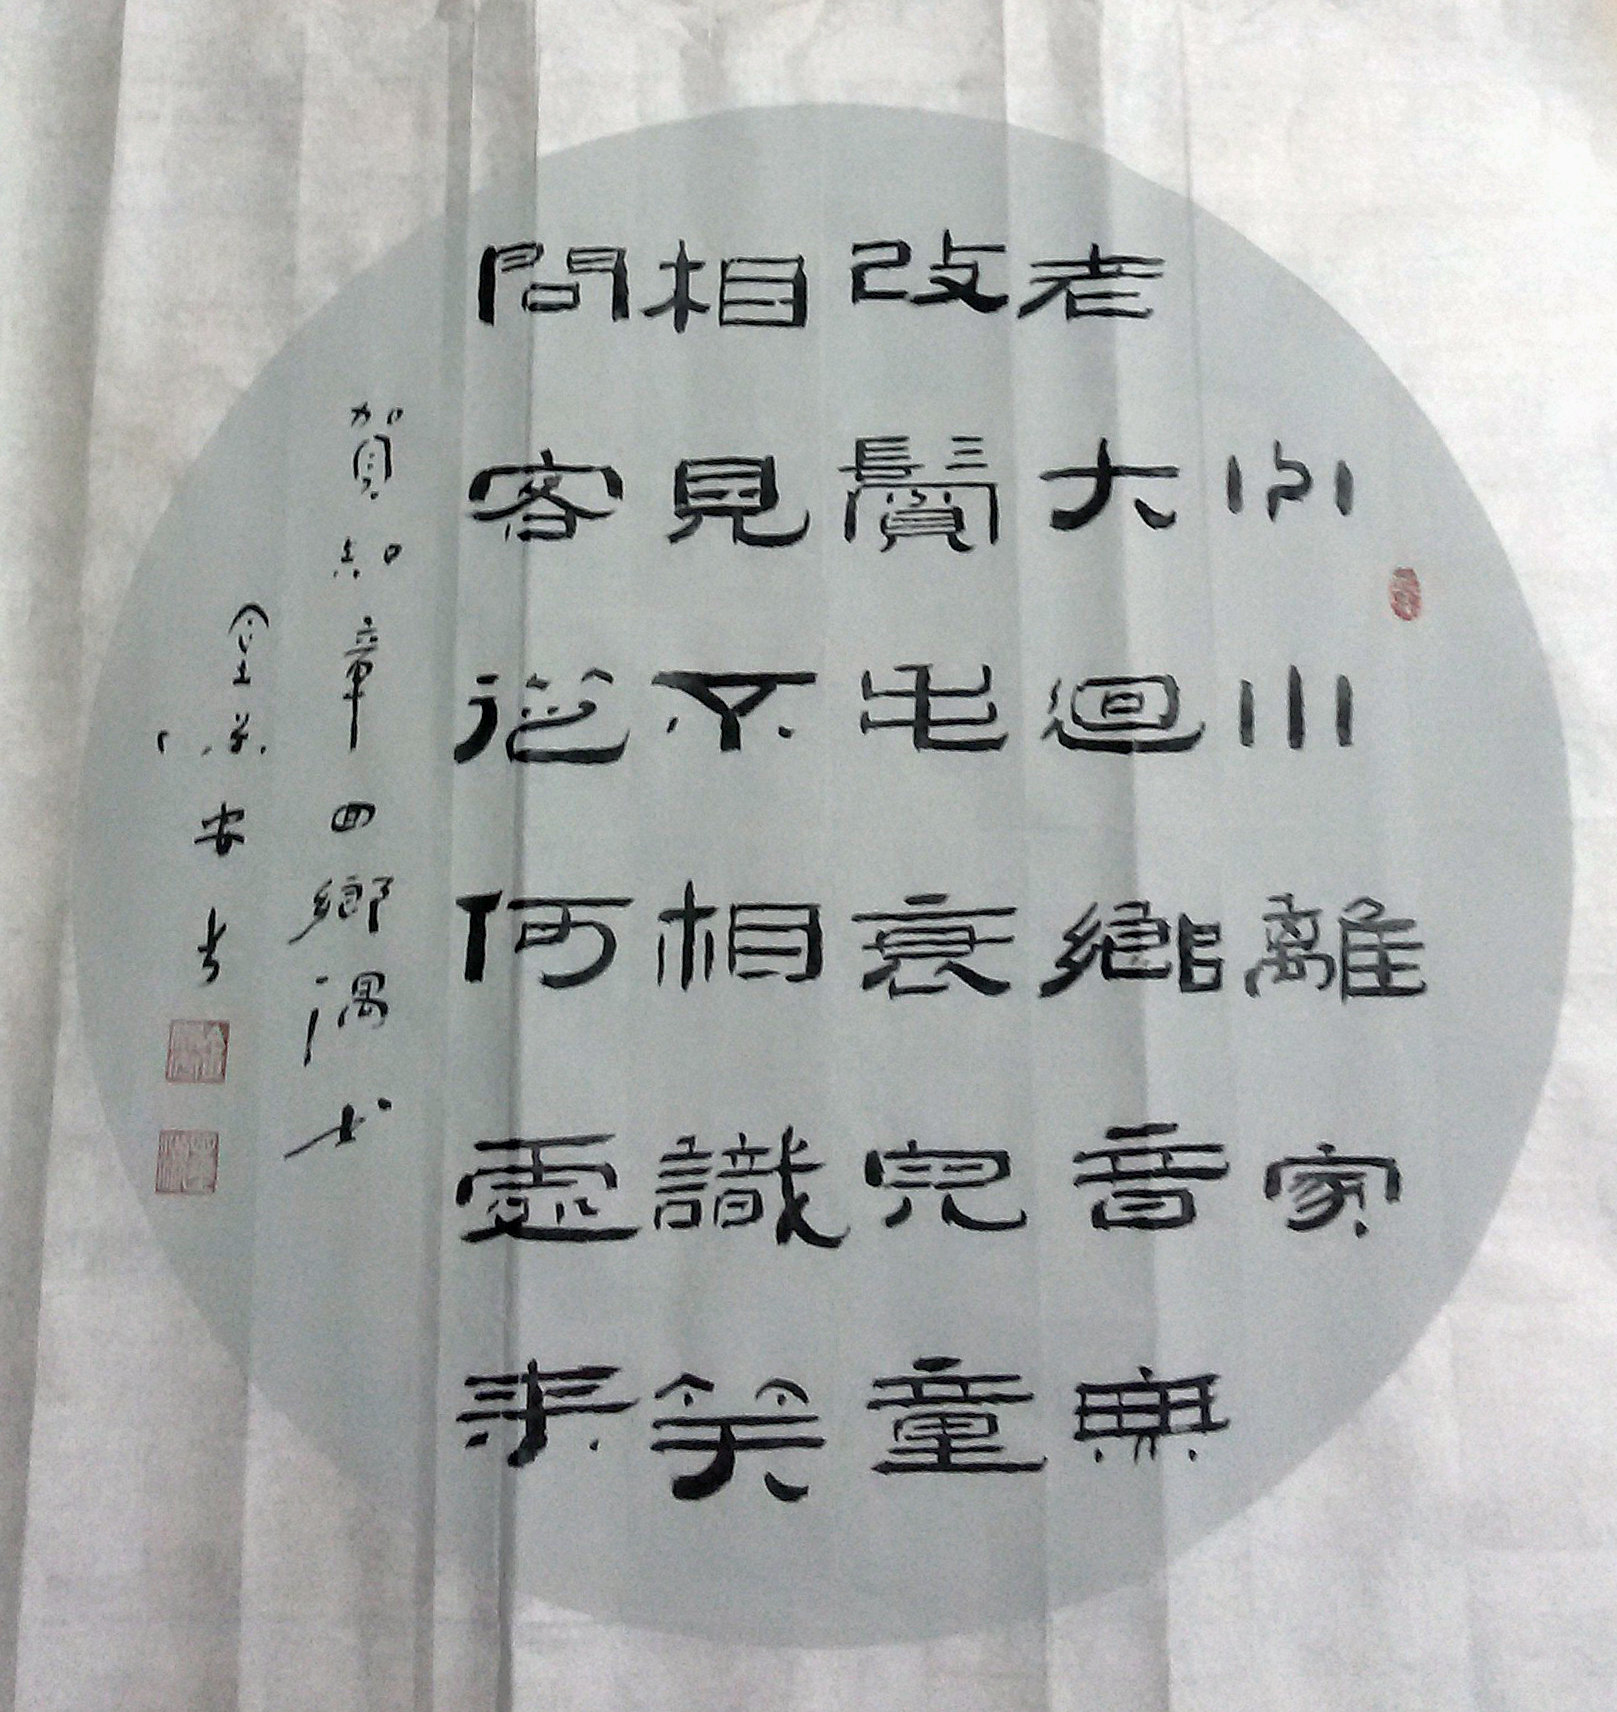 少小離家
老大迴鄉音無
改鬢毛衰兒童
相見不相識笑
問客從何處來
賀知章回鄉偶书
金